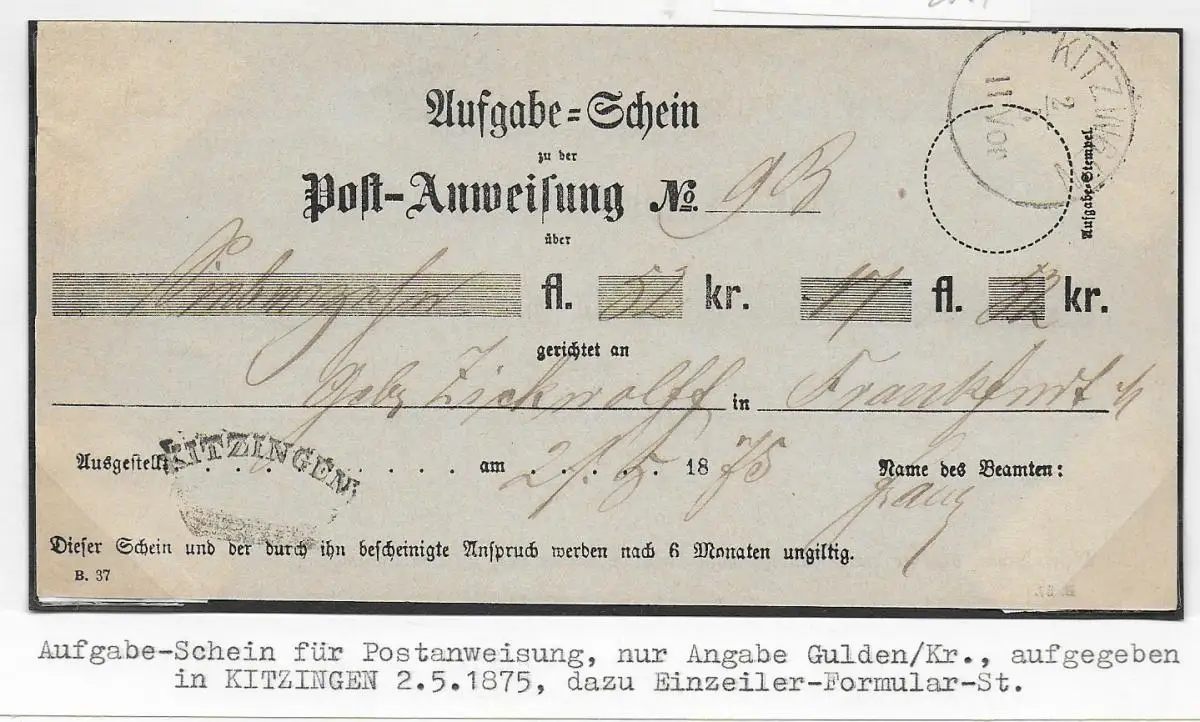 KITZINGEN
2/
11 Vor
Aufgabe=Schein
zu der
Post-Anweisung No. 93
Aufgabe-Stempel
über
fl. 52 kr. 17 fl. 52 kr.
gerichtet an
Zickwolff in Frankfurt a/
Ausgestellt KITZINGEN am 2/. 5. 1875 Name des Beamten:
Dieser Schein und der durch ihn bescheinigte Anspruch werden nach 6 Monaten ungiltig.
B. 37
Aufgabe-Schein für Postanweisung, nur Angabe Gulden/Kr., aufgegeben
in KITZINGEN 2.5.1875, dazu Einzeiler-Formular-St.